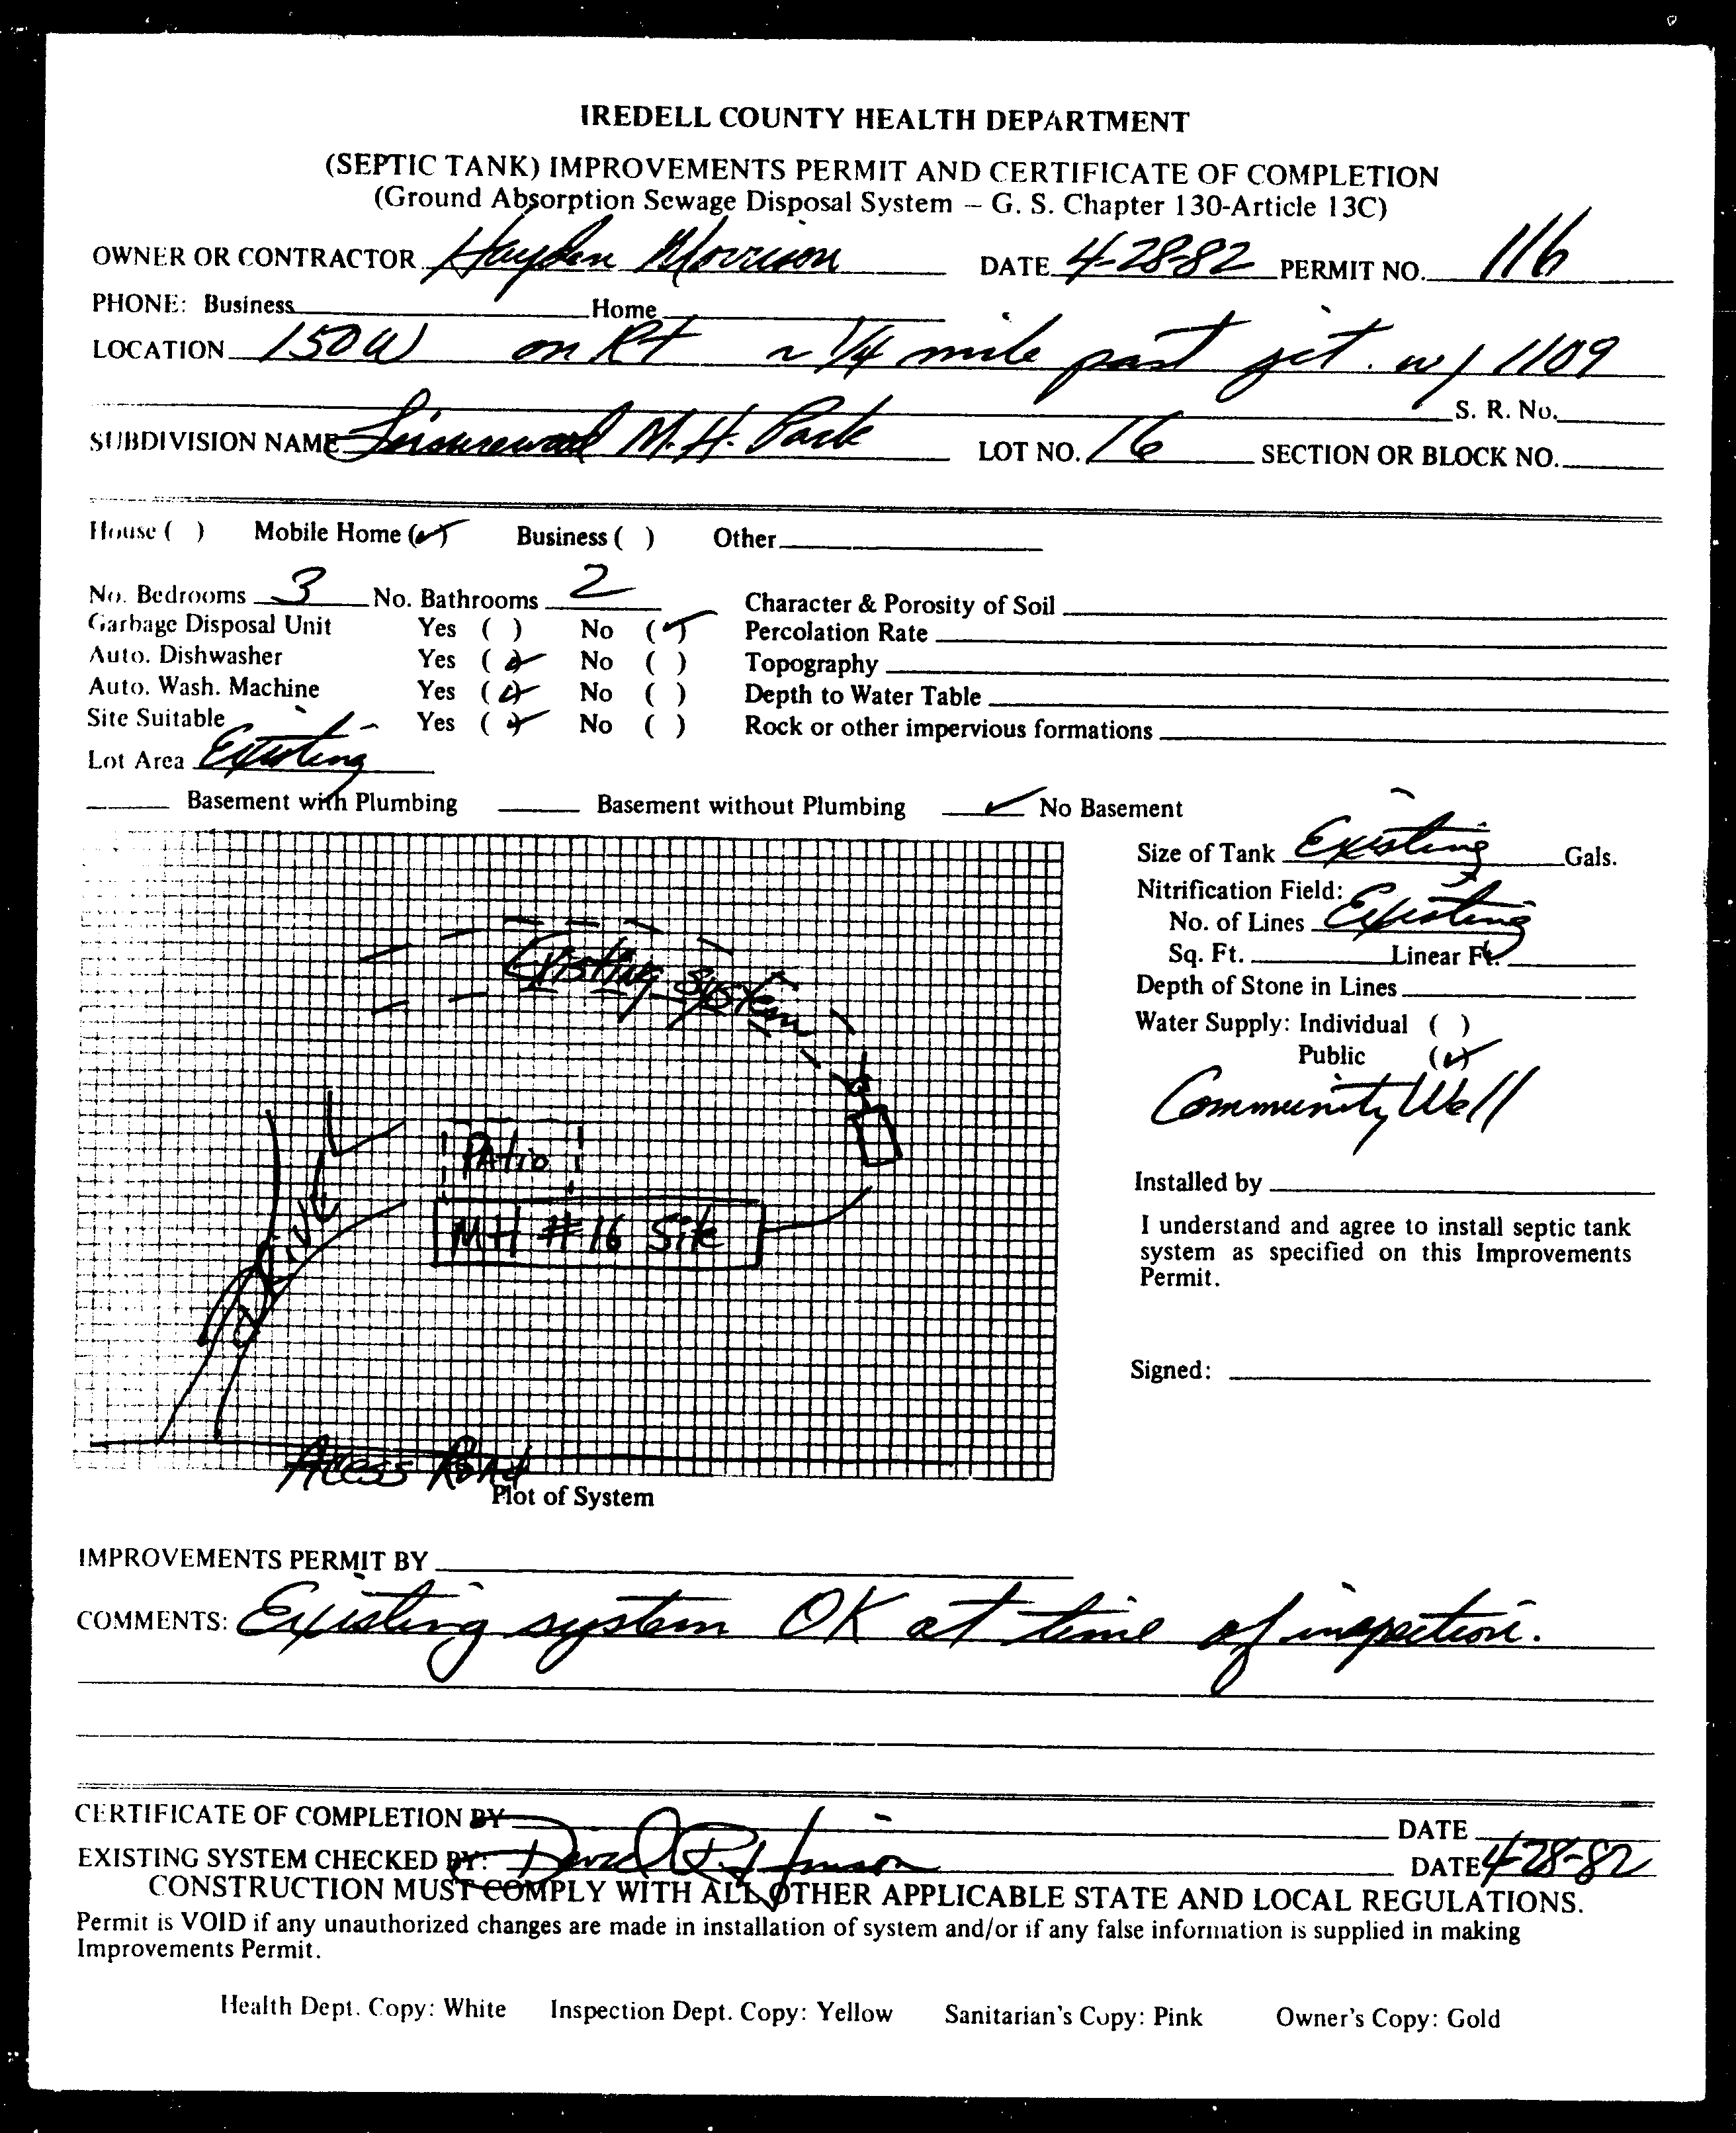 IREDELL COUNTY HEALTH DEPARTMENT
(SEPTIC TANK) IMPROVEMENTS PERMIT AND CERTIFICATE OF COMPLETION
(Ground Absorption Sewage Disposal System – G. S. Chapter 130-Article 13C)
OWNER OR CONTRACTOR Hayden Morrison DATE 4-28-82 PERMIT NO. 116
PHONE: Business Home
LOCATION 150W on Rt ~ 1/4 mile past jct. w/ 1109
S. R. No.
SUBDIVISION NAME M. H. Park LOT NO. 16 SECTION OR BLOCK NO.
House ( ) Mobile Home (✓) Business ( ) Other
No. Bedrooms 3 No. Bathrooms 2 Character & Porosity of Soil
Garbage Disposal Unit Yes ( ) No (✓) Percolation Rate
Auto. Dishwasher Yes (✓) No ( ) Topography
Auto. Wash. Machine Yes (✓) No ( ) Depth to Water Table
Site Suitable Yes (✓) No ( ) Rock or other impervious formations
Lot Area Existing
Basement with Plumbing Basement without Plumbing ✓ No Basement
Size of Tank Existing Gals.
Nitrification Field:
No. of Lines Existing
Sq. Ft. Linear Ft.
Depth of Stone in Lines
Water Supply: Individual ( )
Public (✓)
Community Well
Installed by
I understand and agree to install septic tank
system as specified on this Improvements
Permit.
Signed:
Existing System
Patio
MH #16 Site
Access Road
Plot of System
IMPROVEMENTS PERMIT BY
COMMENTS: Existing system OK at time of inspection.
CERTIFICATE OF COMPLETION BY DATE
EXISTING SYSTEM CHECKED BY: David R. DATE 4-28-82
CONSTRUCTION MUST COMPLY WITH ALL OTHER APPLICABLE STATE AND LOCAL REGULATIONS.
Permit is VOID if any unauthorized changes are made in installation of system and/or if any false information is supplied in making
Improvements Permit.
Health Dept. Copy: White Inspection Dept. Copy: Yellow Sanitarian's Copy: Pink Owner's Copy: Gold